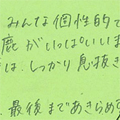 みんな個性的で
鹿がいっぱいいま
は、しっかり息抜き
最後まであきらめず